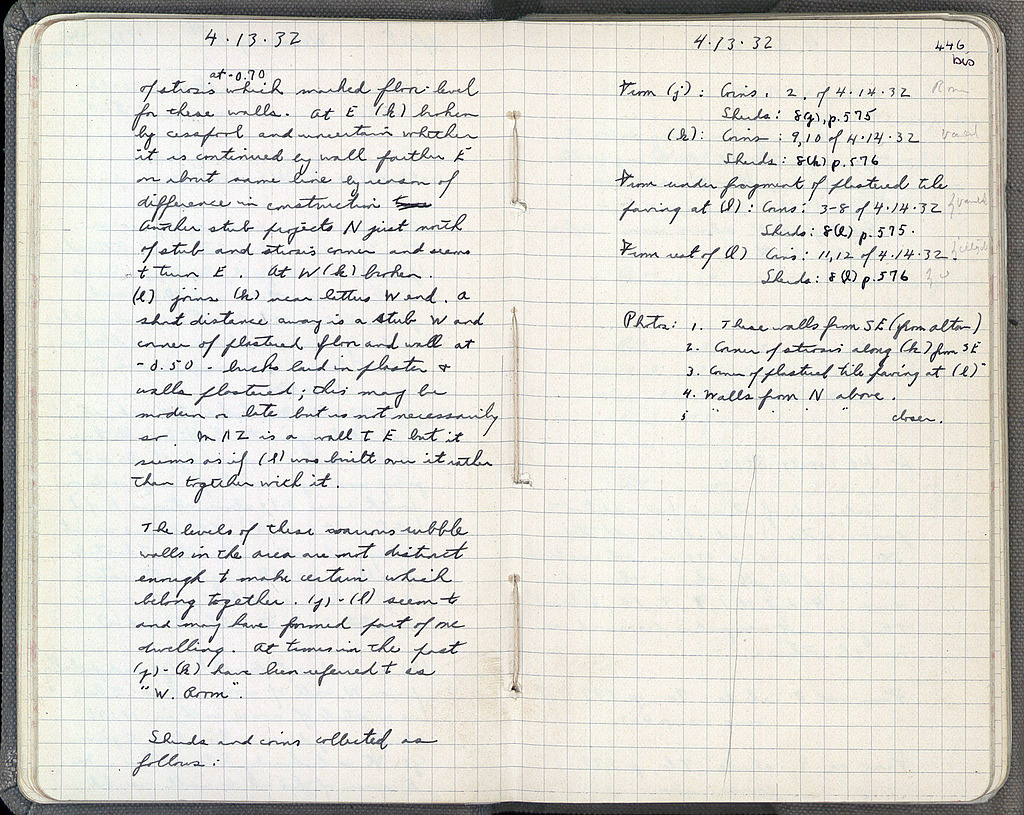 4·13·32
at -0.70
of strosis which marked floor level
for these walls. At E (k) broken
by cesspool and uncertain whether
it is continued by wall farther E
on about same line by reason of
difference in construction
Another stub projects N just north
of stub and strosis corner and seems
to turn E. At W (k) broken.
(l) joins (k) near latters W end. A
short distance away is a stub W and
corner of plastered floor and wall at
-0.50 - bricks laid in plaster &
walls plastered; this may be
modern or late but is not necessarily
so. In ΛΖ is a wall to E but it
seems as if (l) was built over it rather
than together with it.
The levels of these various rubble
walls in the area are not distinct
enough to make certain which
belong together. (j)-(l) seem to
and may have formed part of one
dwelling. At times in the past
(j)-(k) have been referred to as
"W. Room".
Sherds and coins collected as
follows:
4·13·32
446
bis
From (j): Coins: 2, of 4·14·32
Sherds: 8(j), p. 575
(k): Coins: 9,10 of 4·14·32
Sherds: 8(k) p. 576
From under fragment of plastered tile
paving at (l): Coins: 3-8 of 4·14·32
Sherds: 8(l) p. 575.
From rest of (l) Coins: 11,12 of 4·14·32.
Sherds: 8(l) p. 576
Photos: 1. These walls from SE (from altar)
2. Corner of strosis along (k) from SE
3. Corner of plastered tile paving at (l)
4. Walls from N above.
5 " " " " closer.